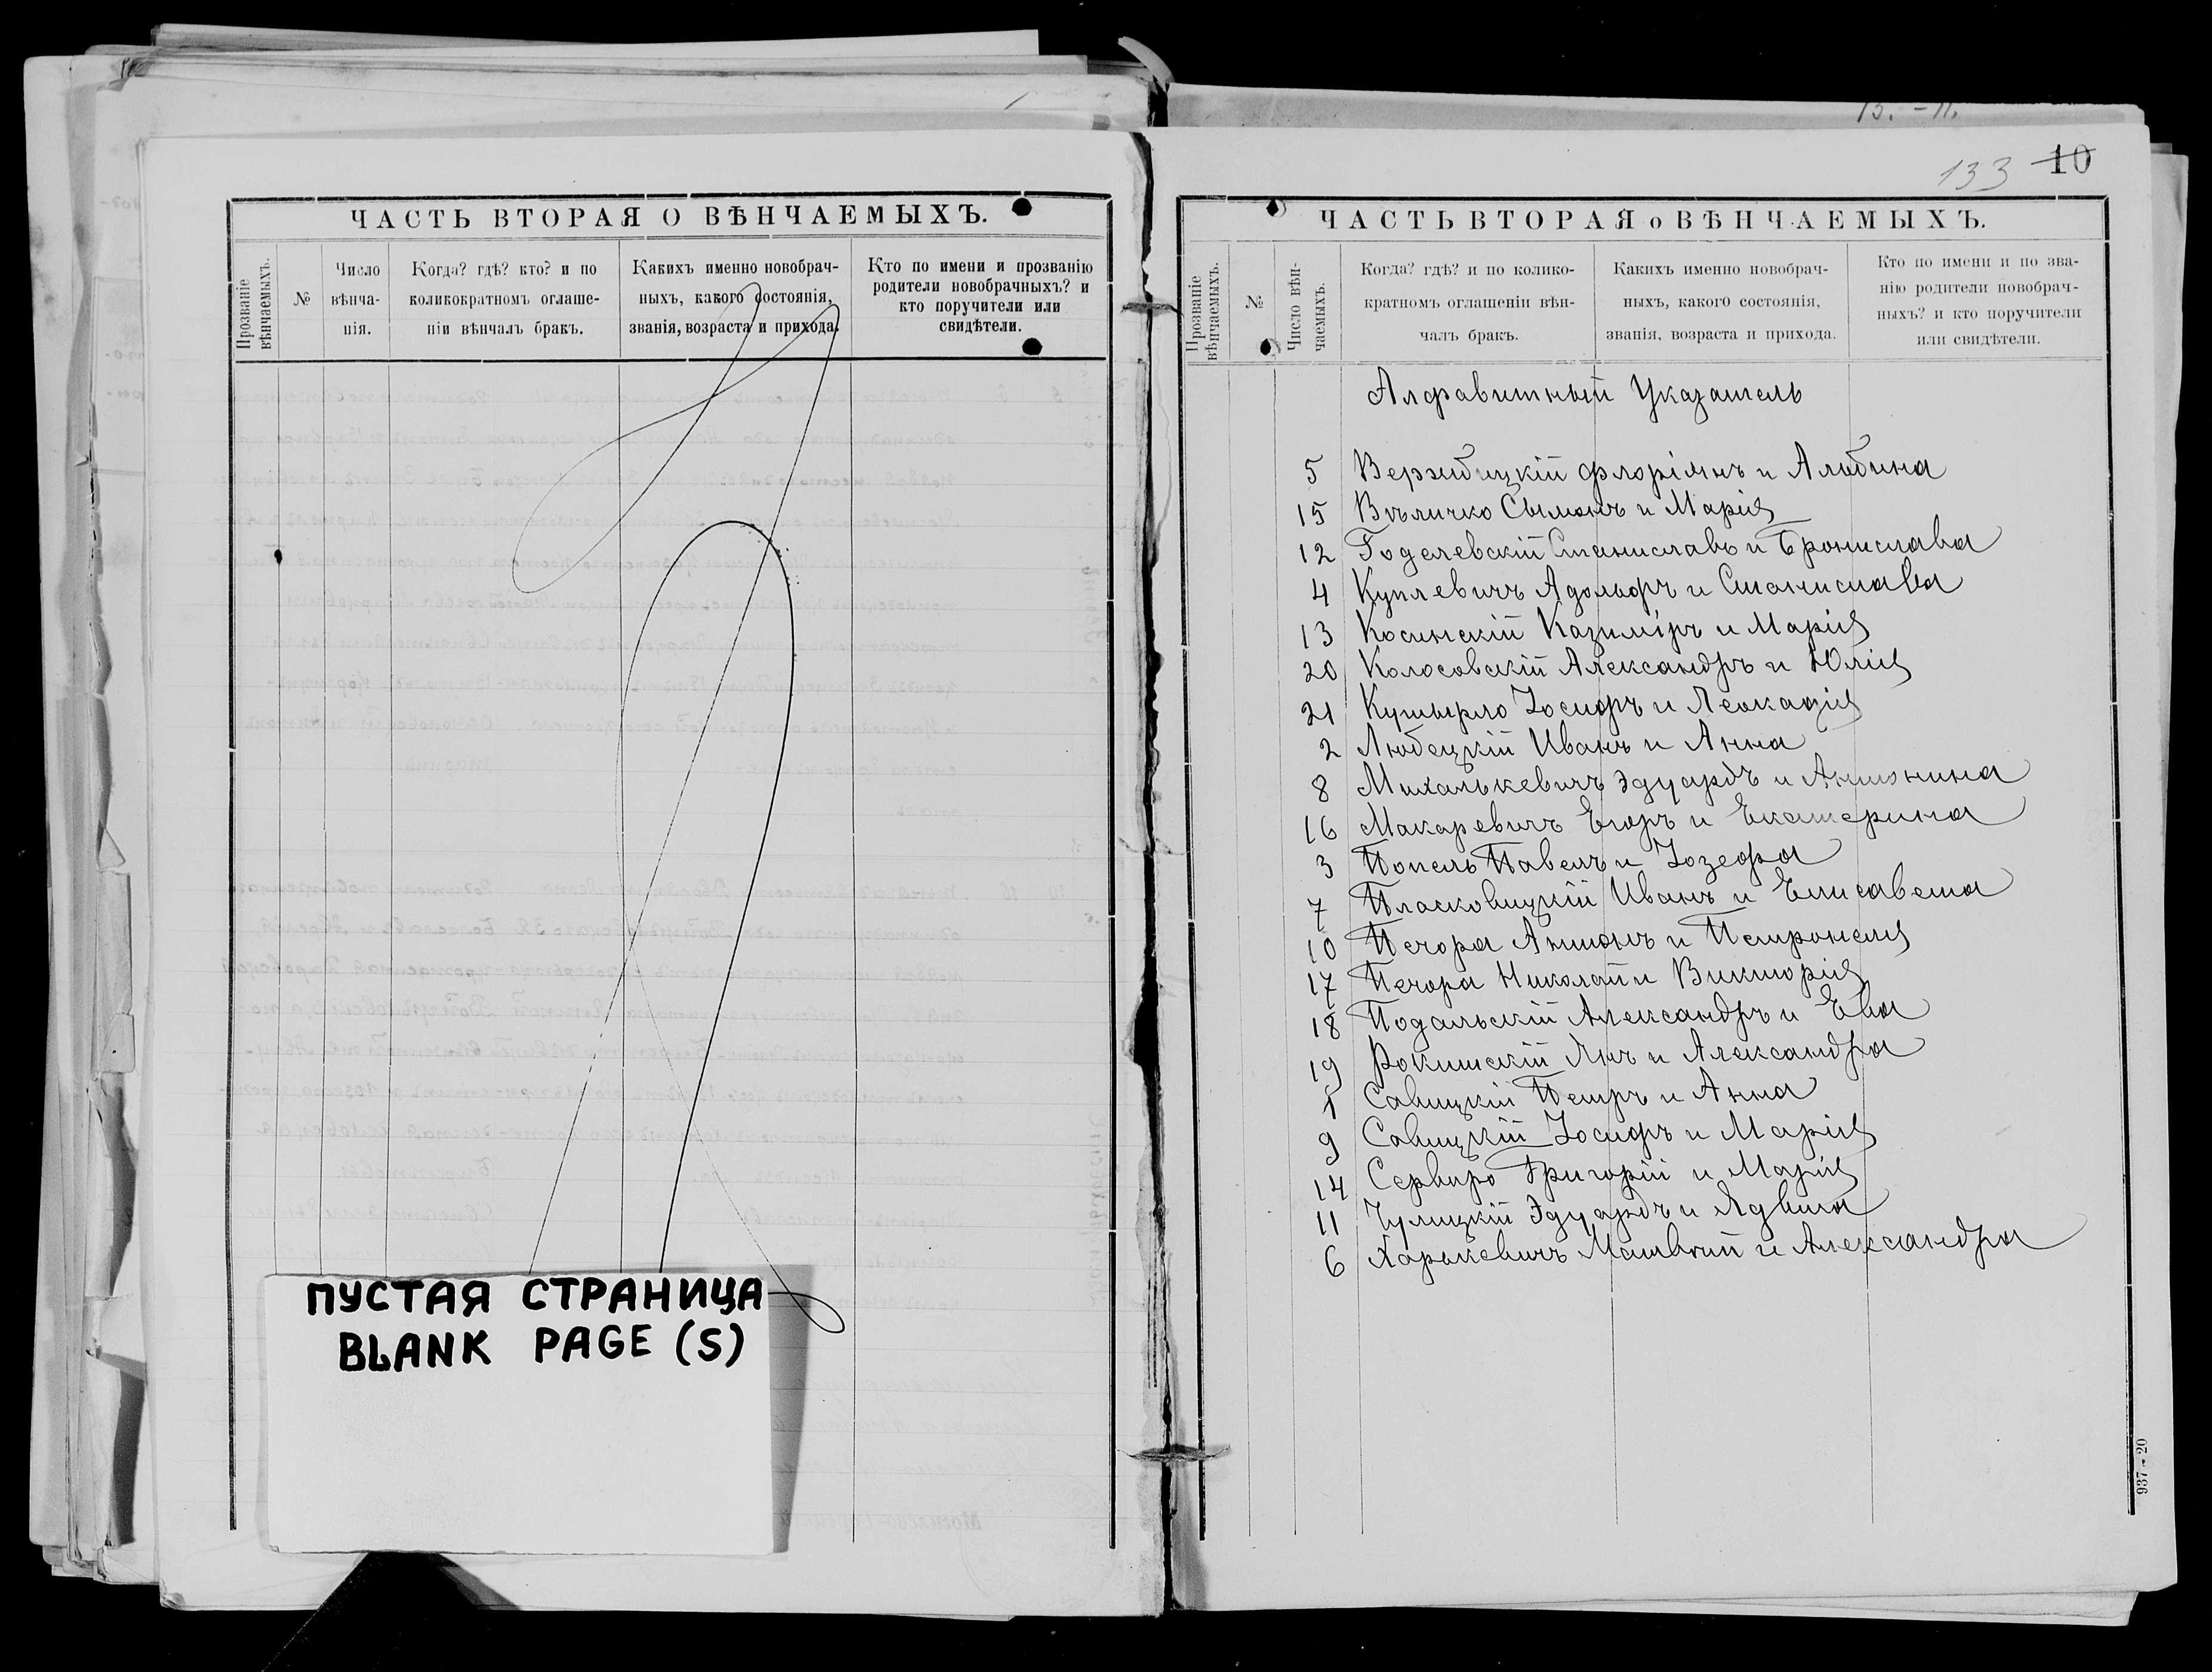 ЧАСТЬ ВТОРАЯ О ВѢНЧАЕМЫХЪ.
Прозваніе вѣнчаемыхъ.
№
Число вѣнча-
нія.
Когда? гдѣ? кто? и по
коликократномъ оглаше-
ніи вѣнчалъ бракъ.
Какихъ именно новобрач-
ныхъ, какого состоянія,
званія, возраста и прихода.
Кто по имени и прозванію
родители новобрачныхъ? и
кто поручители или
свидѣтели.
ПУСТАЯ СТРАНИЦА
BLANK PAGE (S)
13. - 11.
133 10
ЧАСТЬ ВТОРАЯ о ВѢНЧАЕМЫХЪ.
Прозваніе
вѣнчаемыхъ.
№
Число вѣн-
чаемыхъ.
Когда? гдѣ? и по колико-
кратномъ оглашеніи вѣн-
чалъ бракъ.
Какихъ именно новобрач-
ныхъ, какого состоянія,
званія, возраста и прихода.
Кто по имени и по зва-
нію родители новобрач-
ныхъ? и кто поручители
или свидѣтели.
Алфавитный Указатель
5 Вержбицкій Флоріянъ и Альбина
15 Въличко Сымонъ и Марія
12 Годлевскій Станиславъ и Брониславa
4 Куплевичъ Адольфъ и Станислава
13 Косинскій Казиміръ и Марія
20 Колосовскій Александръ и Юлія
21 Кушырло Іосифъ и Леокадія
2 Любецкій Иванъ и Анна
8 Михалькевичъ Эдуардъ и Антонина
16 Макаревичъ Егоръ и Екатерина
3 Попель Павелъ и Іозефа
7 Пласковицкій Иванъ и Елисавета
10 Печора Антонъ и Петронеля
17 Печора Николай и Викторія
18 Подальскій Александръ и Ева
19 Рокишскій Янъ и Александра
1 Савицкій Петръ и Анна
9 Савицкій Іосифъ и Марія
14 Сервиро Григорій и Марія
11 Чулицкій Эдуардъ и Ядвига
6 Харкевичъ Матвѣй и Александра
937 - 20